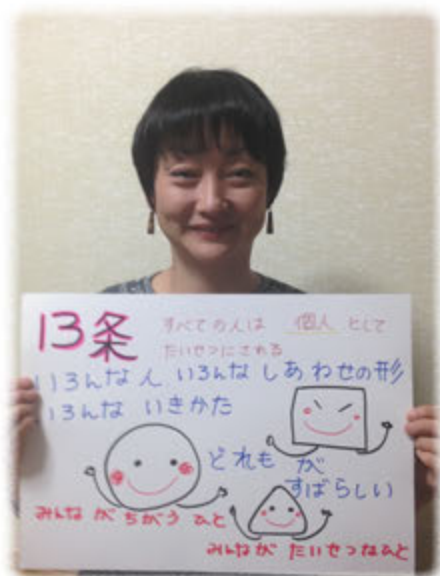 13条
すべての人は 個人 として
たいせつにされる
いろんな人 いろんな しあわせの形
いろんな いきかた
どれも が
すばらしい
みんな が ちがう ひと
みんなが たいせつなひと